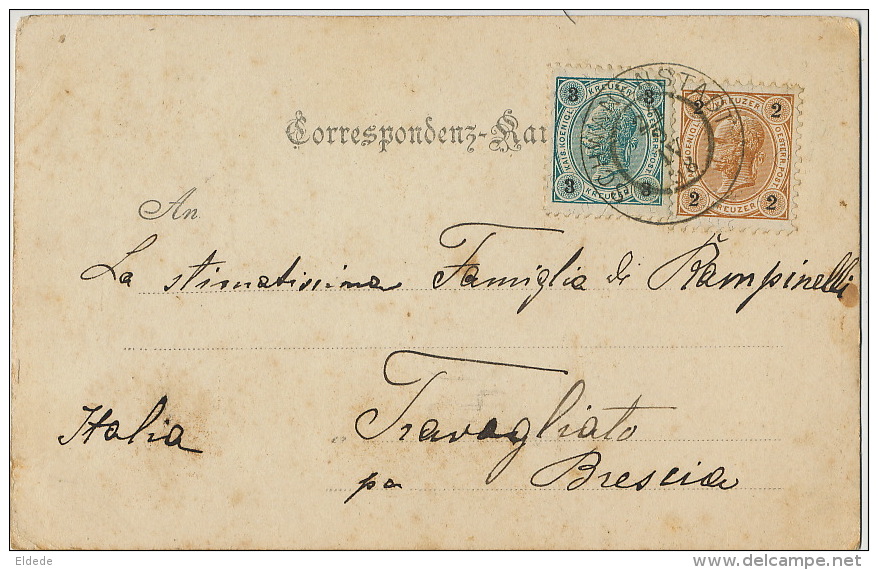 Correspondenz-Kar
3 KREUZER 3
KAIS. KOENIGL. OESTERR. POST.
3 KREUZER 3
2 KREUZER 2
KOENIGL. OESTERR. POST.
2 KREUZER 2
NSTADT
An
La stimatissima Famiglia di Rampinelli
Travagliato
Italia
pa Brescia
Eldede
delcampe.net